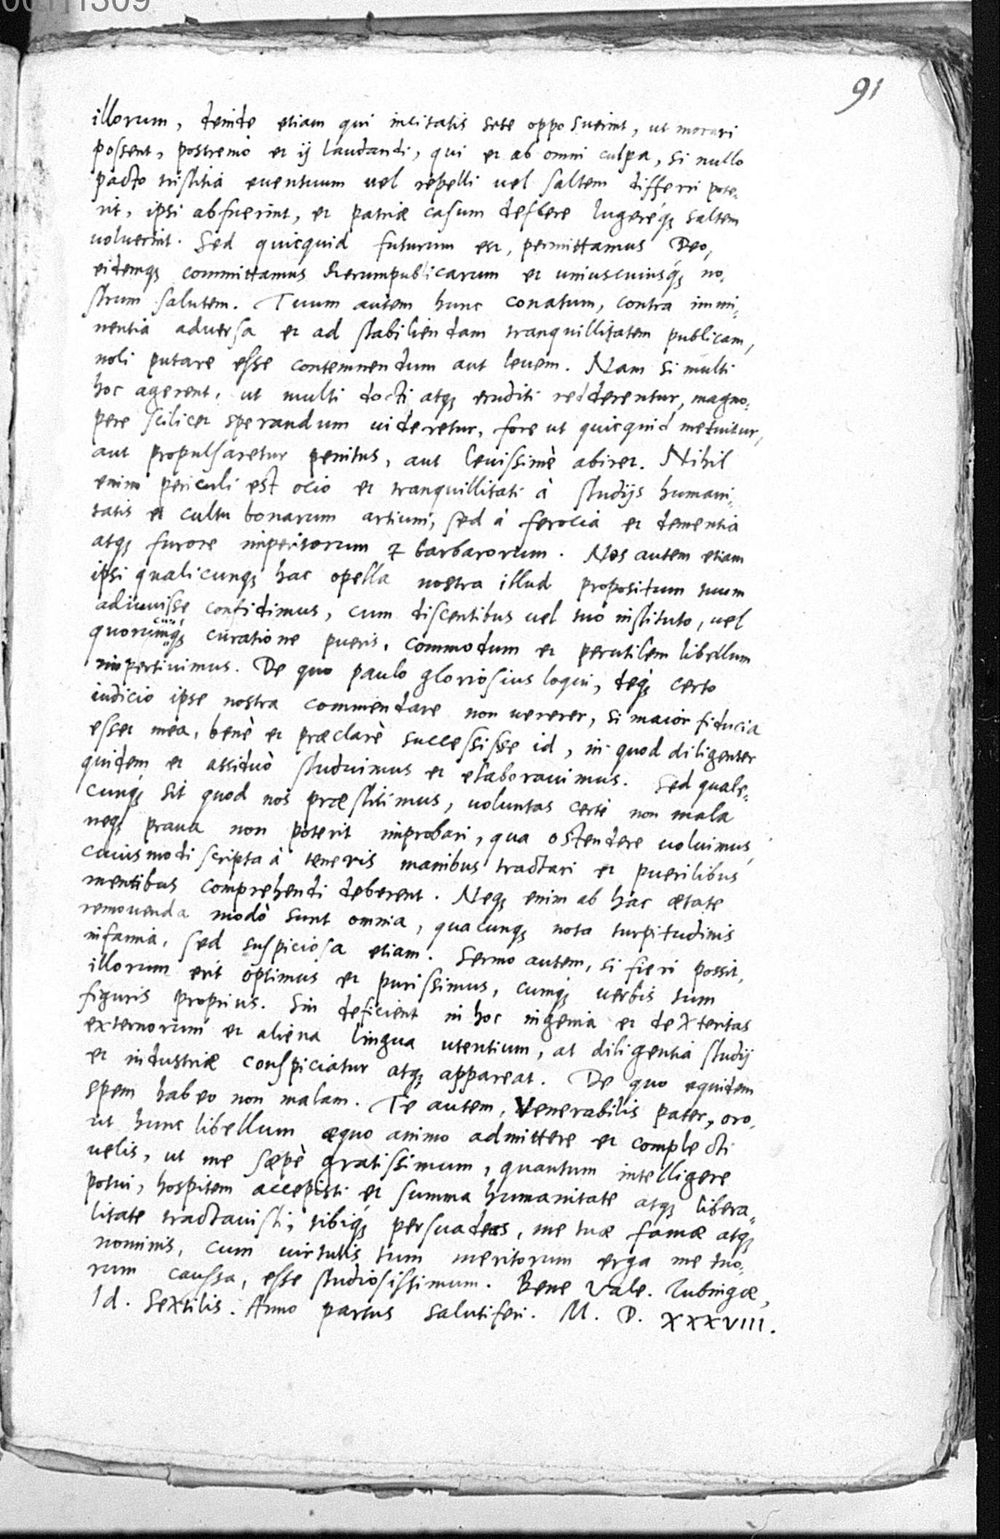 00111309
91
illorum, deinde etiam qui incitatis sese opposuerint, ut morari
possent, postremò et ij laudandi, qui et ab omni culpa, si nullo
pacto tristitia euentuum uel repelli uel saltem differri pote-
rit, ipsi abfuerint, et patriæ casum deflere lugereq́; saltem
uoluerint. Sed quicquid futurum est, permittamus Deo,
eidemq; committamus Rerumpublicarum et uniuscuiusq́; no-
strum salutem. Tuum autem hunc conatum, contra immi-
nentia aduersa et ad stabiliendam tranquillitatem publicam,
noli putare esse contemnendum aut leuem. Nam si multi
hoc agerent, ut multi docti atq; eruditi redderentur, magno-
pere scilicet sperandum uideretur, fore ut quicquid metuitur,
aut propulsaretur penitus, aut leuissimè abiret. Nihil
enim periculi est ocio et tranquillitati à studijs humani-
tatis et cultu bonarum artium, sed à ferocia et dementia
atq; furore imperitorum & barbarorum. Nos autem etiam
ipsi qualicunq; hac opella nostra illud propositum tuum
adiuuisse confidimus, cum discentibus uel tuo instituto, uel
quorumq; cun curatione pueris, commodum et perutilem libellum
impertiuimus. De quo paulo gloriosius loqui, deq́; certo
iudicio ipse nostra commendare non uererer, si maior fiducia
esset mea, benè et præclarè successisse id, in quod diligenter
quidem et assiduò studuimus et elaborauimus. Sed quale-
cunq; sit quod nos præstitimus, uoluntas certè non mala
neq; praua non poterit improbari, qua ostendere uoluimus,
cuiusmodi scripta à teneris manibus tractari et puerilibus
mentibus comprehendi deberent. Neq; enim ab hac ætate
remouenda modò sunt omnia, quacunq; nota turpitudinis
infamia, sed suspiciosa etiam. Sermo autem, si fieri possit,
illorum erit optimus et purissimus, cumq́; uerbis tum
figuris proprius. Sin deficient in hoc ingenia et dexteritas
externorum et aliena lingua utentium, at diligentia studij
et industriæ conspiciatur atq; appareat. De quo equidem
spem habeo non malam. Te autem, Venerabilis pater, oro,
ut hunc libellum æquo animo admittere et complecti
uelis, ut me sæpè gratissimum, quantum intelligere
potui, hospitem accepisti et summa humanitate atq; libera-
litate tractauisti, tibiq; persuadeas, me tuæ famæ atq;
nominis, cum uirtutis tum meritorum erga me tuo-
rum caussa, esse studiosissimum. Bene Vale. Tubingæ,
Id. Sextilis. Anno partus salutiferi. M. D. XXXVIII.